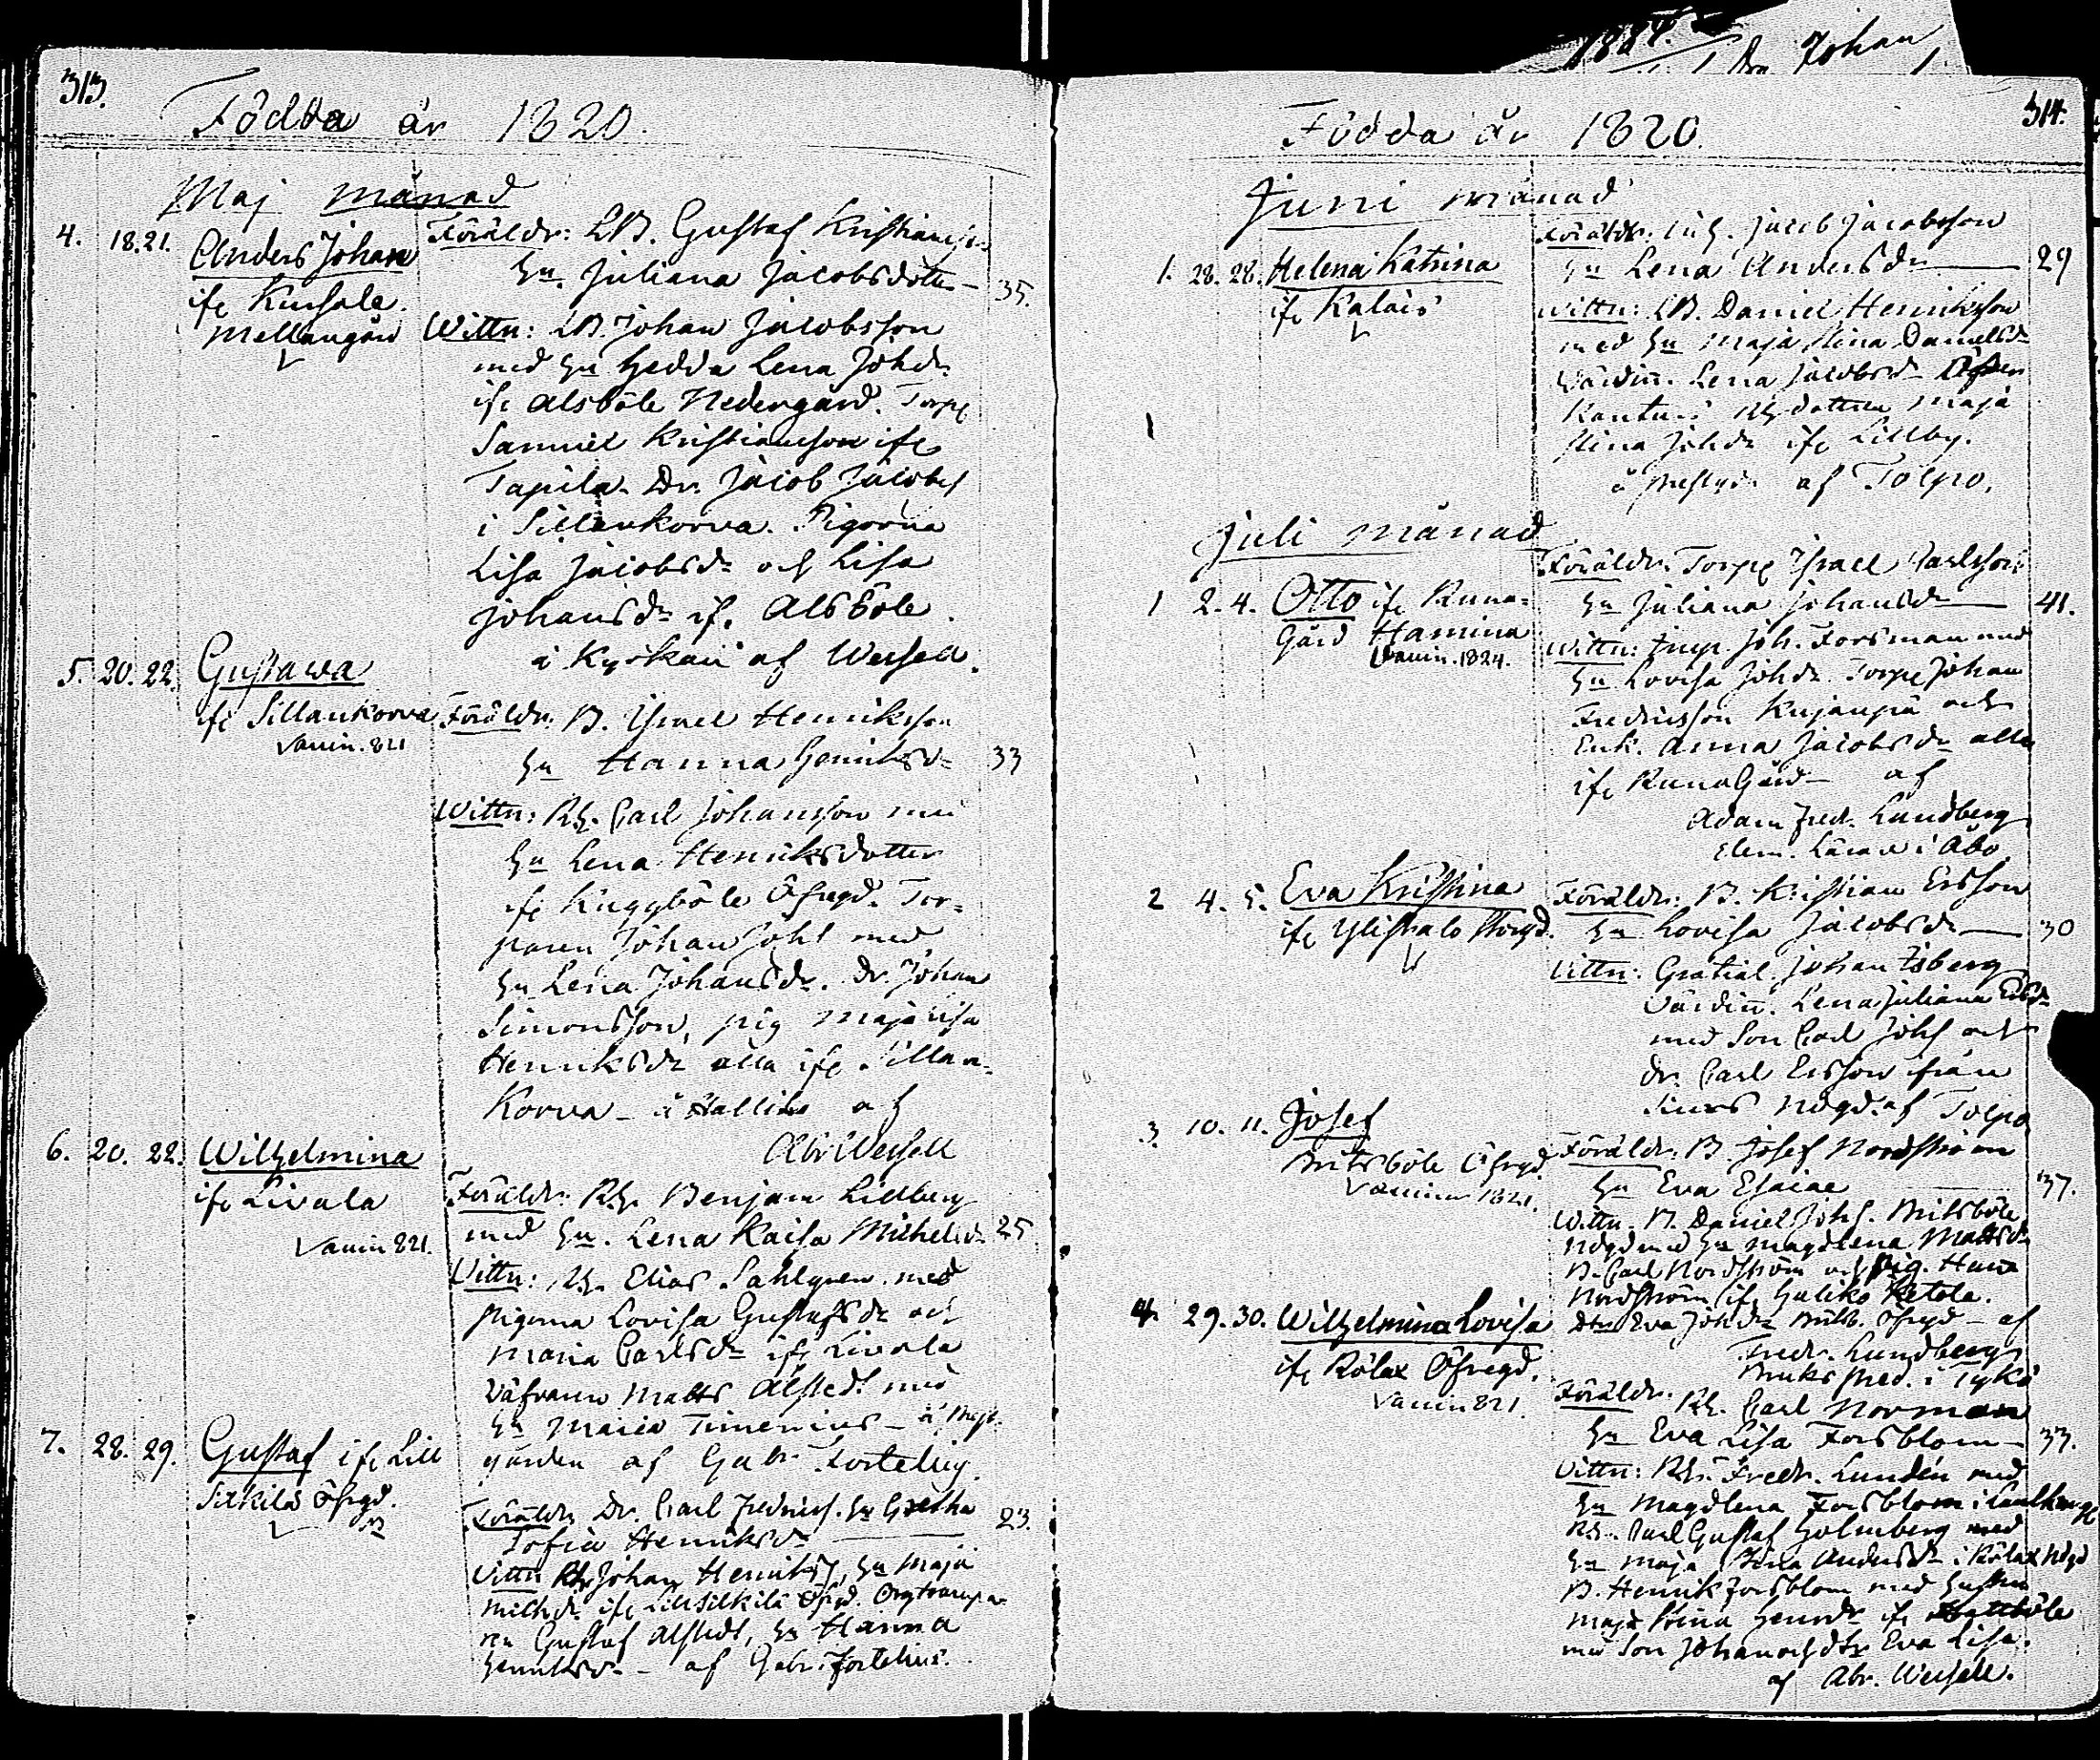 1884.
Dr Johan
313.
Födda år 1820.
Maj månad
4. 18. 21. Anders Johan
ifr Kursala
Mellangård
Föräldr: LB. Gustaf Kristiansson
hu. Juliana Jacobsdotter — 35.
Wittn: LB Johan Jacobsson
med hu Hedda Lena Johdr
ifr Alsböle Nedergård. Torp
Samuel Kristiansson ifr
Tapila. Dr. Jacob Jacobss
i Sillankorva. Pigorna
Lisa Jacobsdr och Lisa
Johansdr if. Alsböle.
i Kyrkan af Wessell.
5. 20. 22. Gustawa
ifr Sillankorva
Vaccin. 821
Föräldr: B. Israel Henriksson
hu Hanna Henriksdr 33
Wittn: Rh. Carl Johansson med
hu Lena Henriksdotter
ifr Kuggböle Öfregd. Tor=
paren Johan Johs med
hu Lena Johansdr. Dr. Johan
Simonsson, pig Maja Lisa
Henriksdr alla ifr Sillan-
korva - i Halliko af
Abr Wessell
6. 20. 22. Wilhelmina
ifr Livala
Vaccin 821.
Föräldr: Rh. Benjam Lidberg
med hu. Lena Kaisa Michelsdr 25
Vittn: Rh. Elias Sahlgren med
pigorna Lovisa Gustafsdr och
Maria Carlsdr ifr Livala
Väfvaren Matts Alstedt med
hu Maria Timenius - å Prest-
gården af Gabr. Fortelius.
7. 28. 29. Gustaf ifr Lill
Silkilä Öfrgd.
Föräldr Dr. Carl Fredricss. hu Gretha
Sofia Henriksdr — 23.
Vittn Rh Johan Henrikss, hu Maja
Michdr ifr Lillsilkilä Öfrgd. Orgtrampa-
ren Gustaf Alstedt, hu Hanna
Henriksdr - af Gabr. Fortelius.
314.
Födda år 1820.
Juni månad
1. 28. 28. Helena Katrina
ifr Kalais
Föräldr: Inh. Jacob Jacobsson
hu Lena Andersdr — 29
Wittn: LB. Daniel Henriksson
med hu Maja Stina Danielsdr
Värdinn. Lena Jacobsdr
Rh dottren Maja
Stina Johdr ifr Lillby.
å Prestgdn af Tolpo.
Juli månad
1 2. 4. Otto ifr Runa-
gård Hamina
Vaccin. 1824.
Föräldr. Torp Israel Carlsson
hu Juliana Johansdr — 41.
Wittn: Insp. Joh. Forsman med
hu Lovisa Johdr. Torp Johan
Fredricsson Kujanpä och
Enk. Anna Jacobsdr alla
ifr Runagård - af
Adam Fredr. Lundberg
Elem. Lärare i Åbo
2 4. 5. Eva Kristina
ifr Ylistalo Storgd.
Föräldr: B. Kristian Ersson
hu Lovisa Jacobsdr — 30
Vittn: Gratial. Johan Isberg
Värdinn. Lena Juliana Ersdr
med Son Carl Johs och
dr. Carl Ersson från
Ndgd. af Tolpo
3. 10. 11. Josef
Britsböle Öfrgd
Vaccin 1821.
Föräldr: B. Josef Nordström
hu Eva Esaiae — 37.
Wittn. B. Daniel Johs. Britsböle
Ndgd med hu Magdlena Mattsdr
B. Carl Nordström och Pig. Hanna
Nordström ifr Haliko Ketola.
Dtr Eva Johdr Britsb. Öfrgd - af
Fredr. Lundberg
Bruks Pred. i Tykö
4. 29. 30. Wilhelmina Lovisa
ifr Rölax Öfregd.
Vaccin 821.
Föräldr. Rh. Carl Norrman
hu Eva Lisa Forsblom — 33.
Vittn: Rh. Fredr. Lundén med
hu Magdlena Forsblom i
Rh. Carl Gustaf Holmberg med
hu Maja Stina Andersdr i Rölax Ndgd
B. Henrik Forsblom med hustru
Maja Stina Henrdr ifr
med Son Johan och dtr Eva Lisa.
af Abr. Wessell.